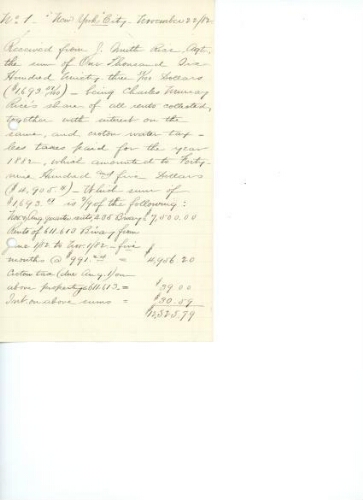 No 1. "New York" City. November 22/82.
Received from J. Smith Rice, Agt.
the sum of One Thousand Six
Hundred Ninety three Dollars
($1693. ) – being Charles Murray
Rice's share of all rents collected,
together with interest on the
same, and croton water tax –
less taxes paid for the year
1882, which amounted to Forty
nine Hundred and five Dollars
($4,905. ) – Which sum of
$1,693. is of the following:
quarter 205 Bway $7,500.00
Rents of 611 & 613 Bway from
June 1/82 to Nov. 1/82 – five
months @ $991. = $4,956.20
Croton tax (due Aug. 1) on
above property 611 & 613 = $39.00
Int. on above sums = $30.59
$12,525.79